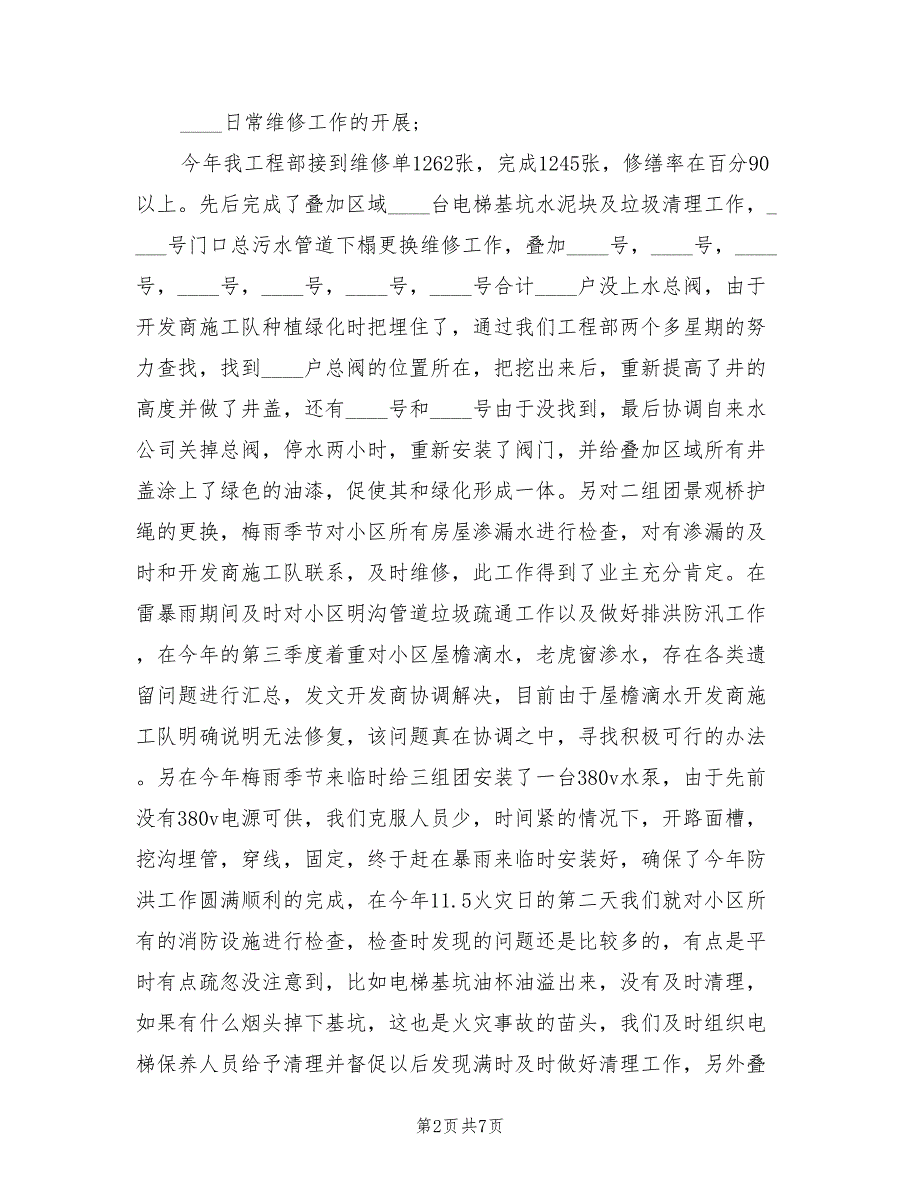 ____日常维修工作的开展;
今年我工程部接到维修单1262张，完成1245张，修缮率在百分90
以上。先后完成了叠加区域____台电梯基坑水泥块及垃圾清理工作，_
___号门口总污水管道下榻更换维修工作，叠加____号，____号，____
号，____号，____号，____号，____号合计____户没上水总阀，由于
开发商施工队种植绿化时把埋住了，通过我们工程部两个多星期的努
力查找，找到____户总阀的位置所在，把挖出来后，重新提高了井的
高度并做了井盖，还有____号和____号由于没找到，最后协调自来水
公司关掉总阀，停水两小时，重新安装了阀门，并给叠加区域所有井
盖涂上了绿色的油漆，促使其和绿化形成一体。另对二组团景观桥护
绳的更换，梅雨季节对小区所有房屋渗漏水进行检查，对有渗漏的及
时和开发商施工队联系，及时维修，此工作得到了业主充分肯定。在
雷暴雨期间及时对小区明沟管道垃圾疏通工作以及做好排洪防汛工作
，在今年的第三季度着重对小区屋檐滴水，老虎窗渗水，存在各类遗
留问题进行汇总，发文开发商协调解决，目前由于屋檐滴水开发商施
工队明确说明无法修复，该问题真在协调之中，寻找积极可行的办法
。另在今年梅雨季节来临时给三组团安装了一台380v水泵，由于先前
没有380v电源可供，我们克服人员少，时间紧的情况下，开路面槽，
挖沟埋管，穿线，固定，终于赶在暴雨来临时安装好，确保了今年防
洪工作圆满顺利的完成，在今年11.5火灾日的第二天我们就对小区所
有的消防设施进行检查，检查时发现的问题还是比较多的，有点是平
时有点疏忽没注意到，比如电梯基坑油杯油溢出来，没有及时清理，
如果有什么烟头掉下基坑，这也是火灾事故的苗头，我们及时组织电
梯保养人员给予清理并督促以后发现满时及时做好清理工作，另外叠
第2页共7页